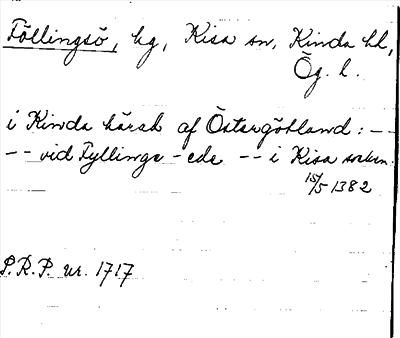 Föllingsö, hg, Kisa sn, Kinda hd,
Ög. l.
i Kinda härad af Östergötland: --
-- vid Fyllings-ede -- i Kisa socken.
15/5 1382
P.R.P. nr. 1717